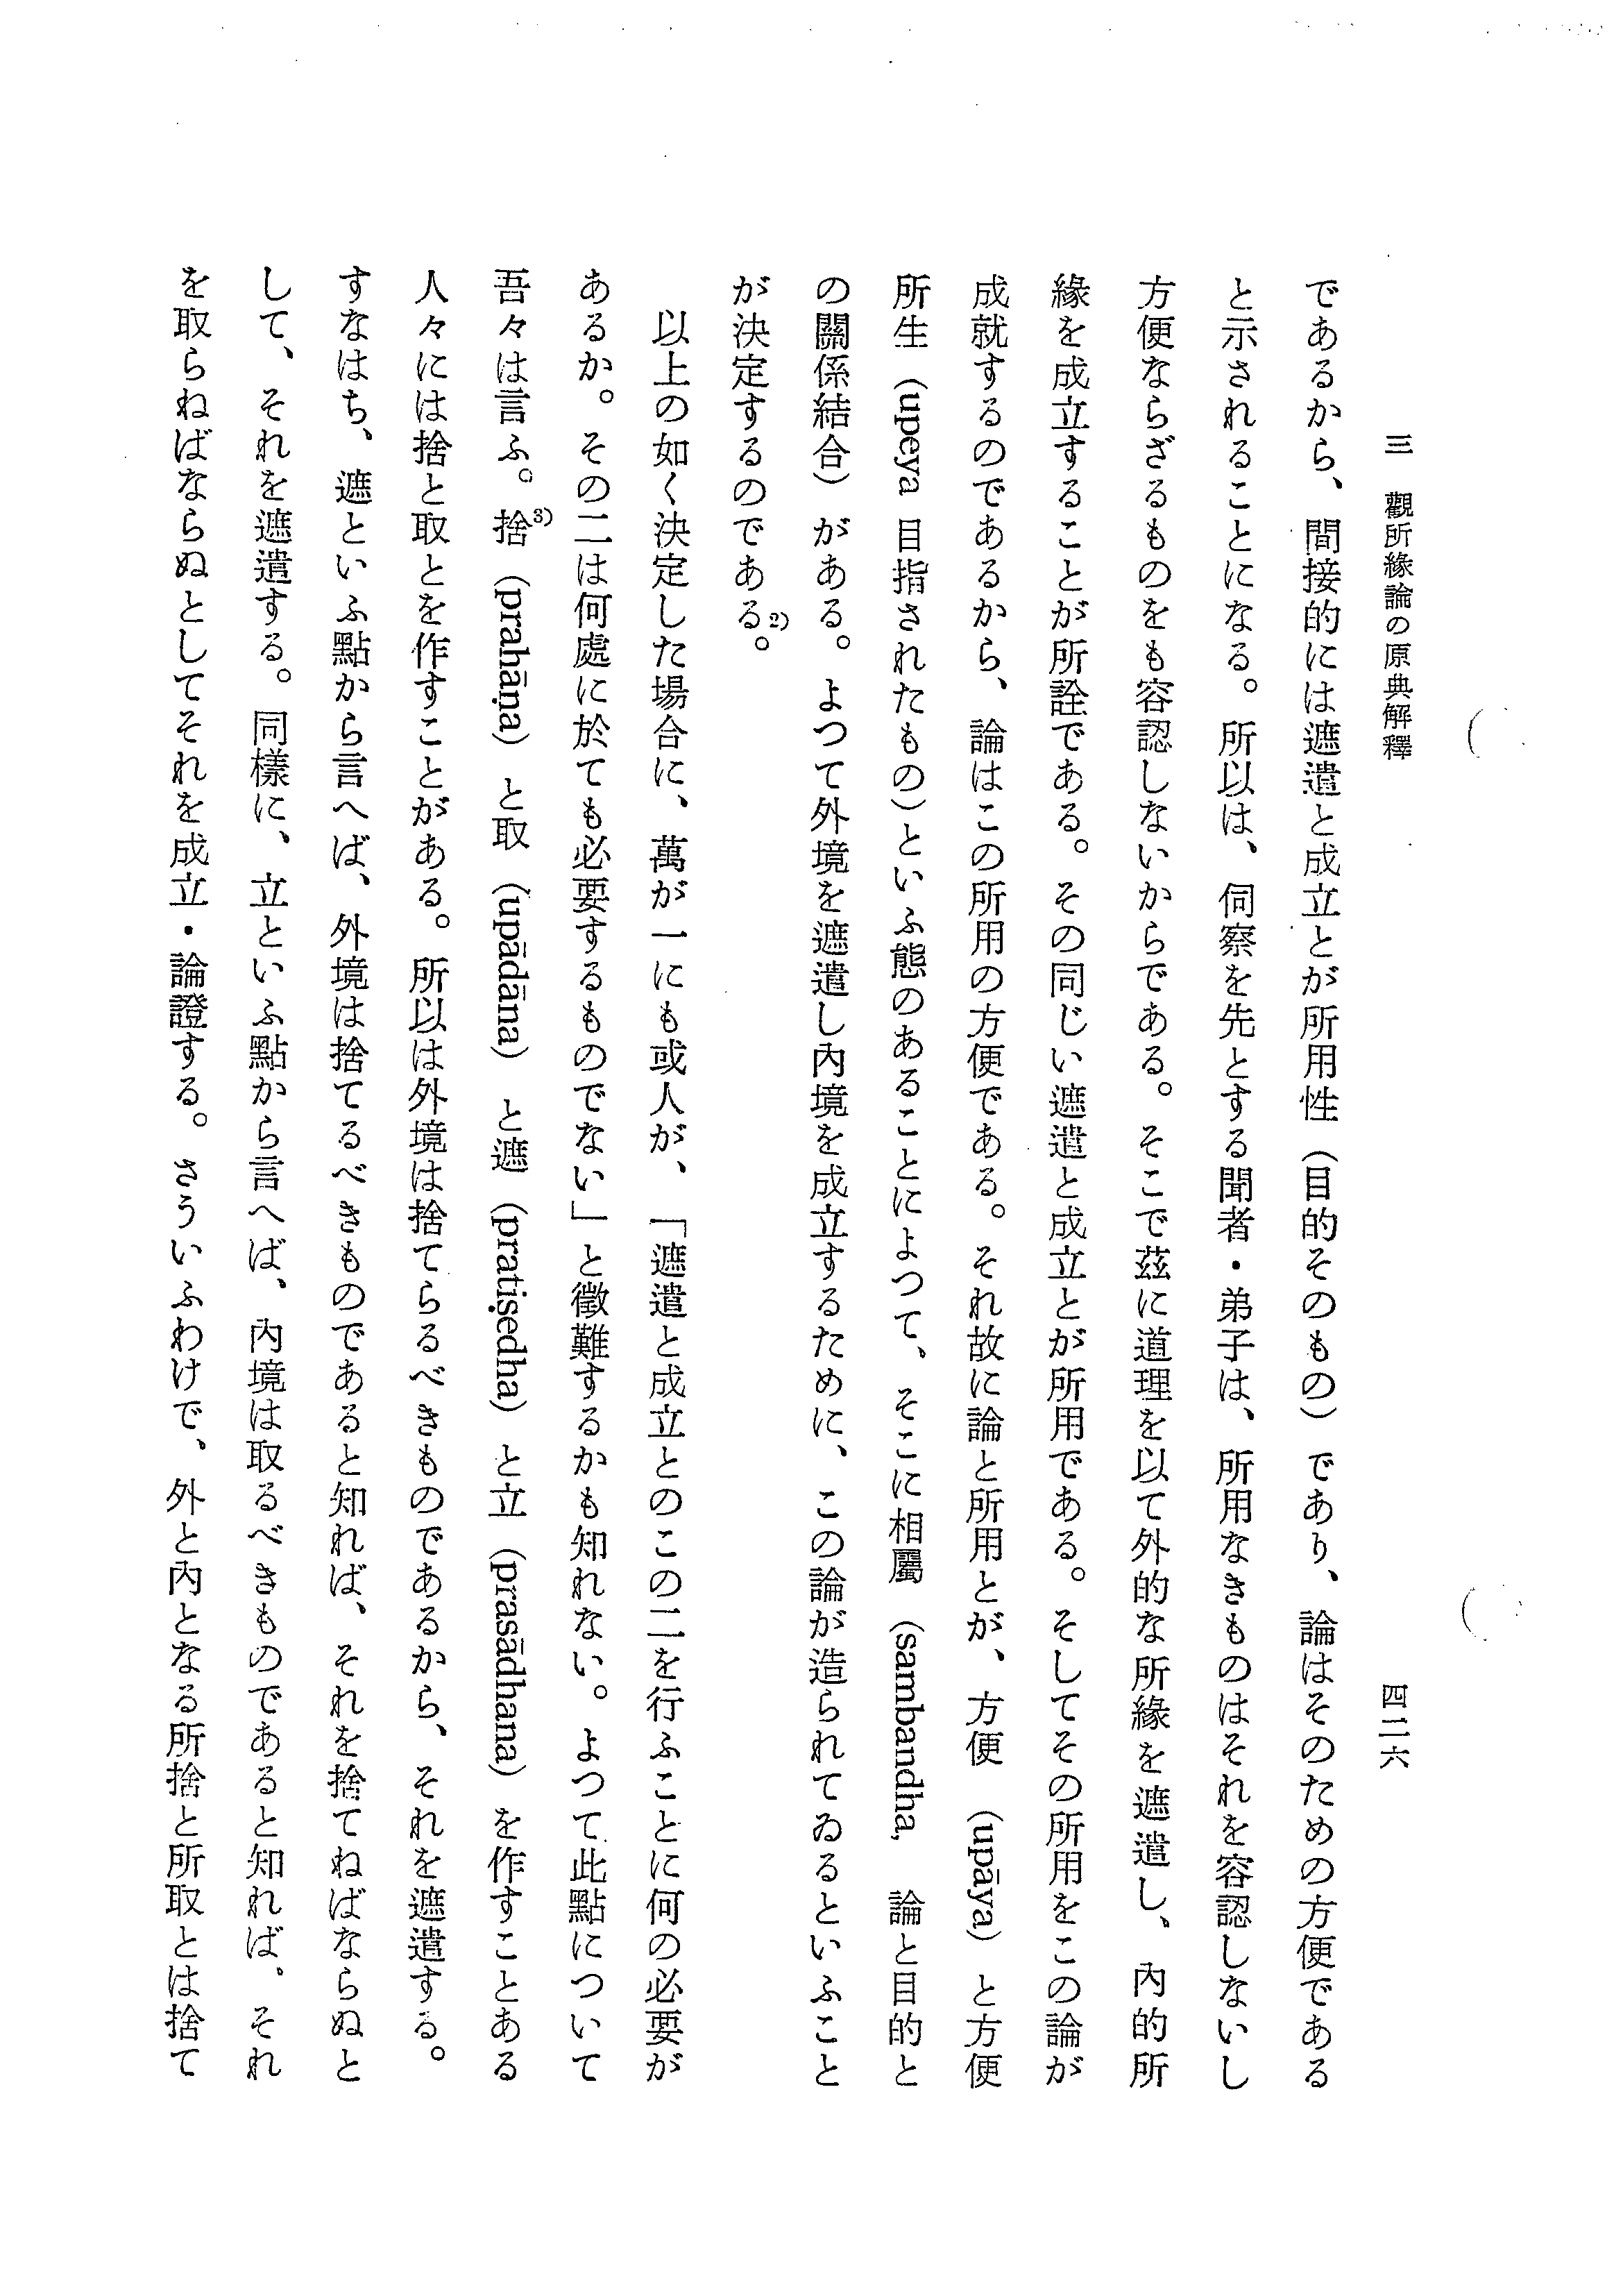 三　觀所緣論の原典解釋
四二六
であるから、間接的には遮遣と成立とが所用性（目的そのもの）であり、論はそのための方便である
と示されることになる。所以は、伺察を先とする聞者・弟子は、所用なきものはそれを容認しないし
方便ならざるものをも容認しないからである。そこで茲に道理を以て外的な所緣を遮遣し、內的所
緣を成立することが所詮である。その同じい遮遣と成立とが所用である。そしてその所用をこの論が
成就するのであるから、論はこの所用の方便である。それ故に論と所用とが、方便（upāya）と方便
所生（upeya 目指されたもの）といふ態のあることによつて、そこに相屬（sambandha, 論と目的と
の關係結合）がある。よつて外境を遮遣し內境を成立するために、この論が造られてゐるといふこと
が決定するのである²⁾。
以上の如く決定した場合に、萬が一にも或人が、「遮遣と成立とのこの二を行ふことに何の必要が
あるか。その二は何處に於ても必要するものでない」と徵難するかも知れない。よつて此點について
吾々は言ふ。捨³⁾（prahāṇa）と取（upādāna）と遮（pratiṣedha）と立（prasādhana）を作すことある
人々には捨と取とを作すことがある。所以は外境は捨てらるべきものであるから、それを遮遣する。
すなはち、遮といふ點から言へば、外境は捨てるべきものであると知れば、それを捨てねばならぬと
して、それを遮遣する。同樣に、立といふ點から言へば、內境は取るべきものであると知れば、それ
を取らねばならぬとしてそれを成立・論證する。さういふわけで、外と內となる所捨と所取とは捨て